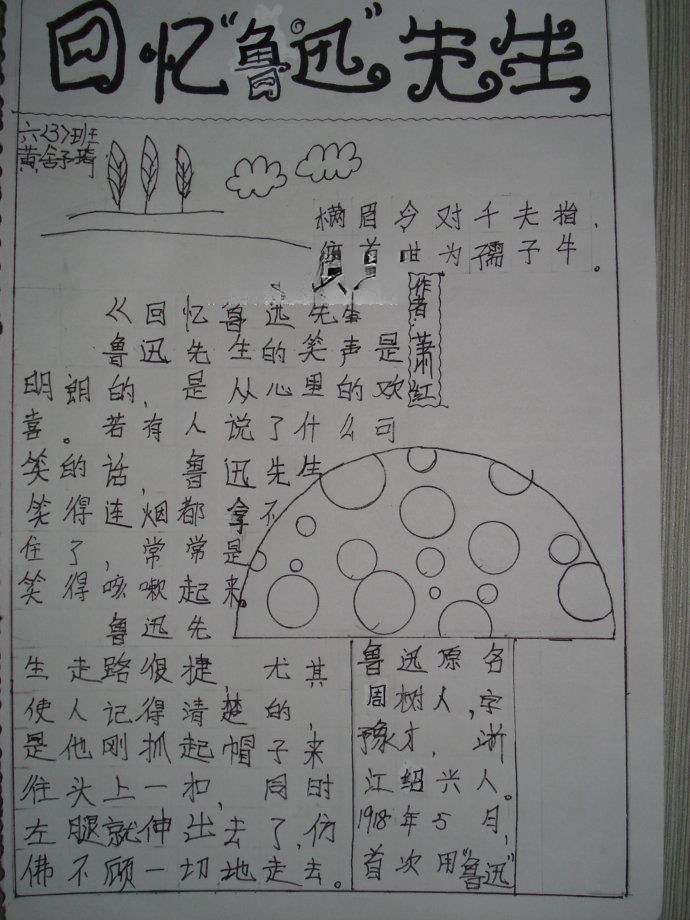 回忆“鲁迅”先生
六<3>班
黄舍予琦
横眉冷对千夫指，
俯首甘为孺子牛。
作者 萧红
《回忆鲁迅先生
鲁迅先生的笑声是
明朗的，是从心里的欢
喜。若有人说了什么可
笑的话，鲁迅先生
笑得连烟都拿不
住了，常常是
笑得咳嗽起来。
鲁迅先
生走路很捷，尤其
使人记得清楚的，
是他刚抓起帽子来
往头上一扣，同时
左腿就伸出去了，仿
佛不顾一切地走去。
鲁迅原名
周树人，字
豫才，浙
江绍兴人。
1918年5月，
首次用“鲁迅”